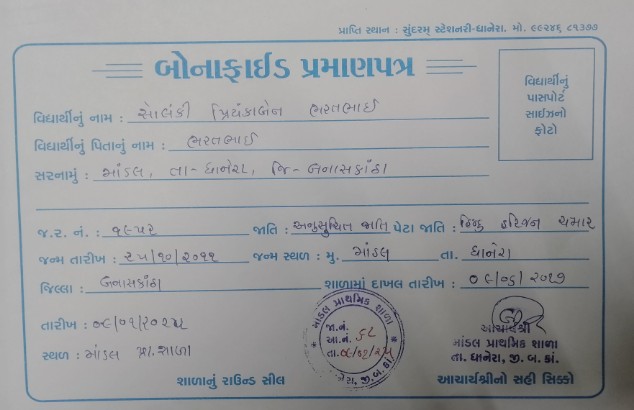 પ્રાપ્તિ સ્થાન : સુંદરમ્ સ્ટેશનરી-ધાનેરા, મો. ૯૯૨૪૬ ૮૧૩૭૭
બોનાફાઈડ પ્રમાણપત્ર
વિદ્યાર્થીનું પાસપોર્ટ સાઈઝનો ફોટો
વિદ્યાર્થીનું નામ : સોલંકી પ્રિયંકાબેન ભરતભાઈ
વિદ્યાર્થીનું પિતાનું નામ : ભરતભાઈ
સરનામું : માંડલ, તા- ધાનેરા, જિ- બનાસકાંઠા
જ.ર. નં. : ૧૯૫૨ જાતિ : અનુસુચિત જાતિ પેટા જાતિ : હિન્દુ હરિજન ચમાર
જન્મ તારીખ : ૨૫/૧૦/૨૦૧૧ જન્મ સ્થળ : મુ. માંડલ તા. ધાનેરા
જિલ્લા : બનાસકાંઠા શાળામાં દાખલ તારીખ : ૦૯/૦૬/૨૦૧૭
તારીખ : ૦૯/૦૧/૨૦૨૫
સ્થળ : માંડલ પ્રા. શાળા
માંડલ પ્રાથમિક શાળા
જા.નં.
આ.નં. ૬૮
તા.
ધાનેરા, જી. બ. કાં.
આચાર્યશ્રી
માંડલ પ્રાથમિક શાળા
તા. ધાનેરા, જી. બ. કાં.
શાળાનું રાઉન્ડ સીલ
આચાર્યશ્રીનો સહી સિક્કો